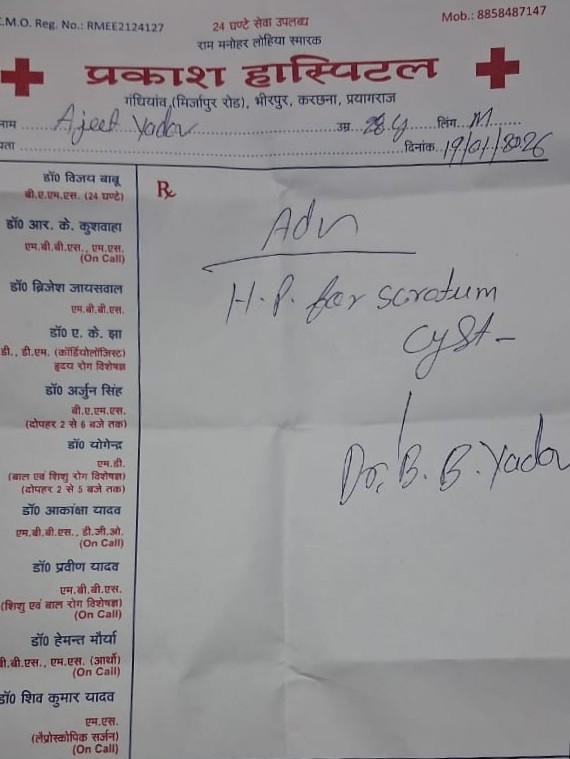 C.M.O. Reg. No.: RMEE2124127
24 घण्टे सेवा उपलब्ध
Mob.: 8858487147
राम मनोहर लोहिया स्मारक
प्रकाश हास्पिटल
गंधियांव (मिर्जापुर रोड), भीरपुर, करछना, प्रयागराज
नाम Ajeet Yadav उम्र 28 y लिंग M
पता दिनांक 19/01/2026
डॉ0 विजय बाबू
बी.ए.एम.एस. (24 घण्टे)
डॉ0 आर. के. कुशवाहा
एम.बी.बी.एस., एम.एस.
(On Call)
डॉ0 ब्रिजेश जायसवाल
एम.बी.बी.एस.
डॉ0 ए. के. झा
डी., डी.एम. (कॉर्डियोलॉजिस्ट)
हृदय रोग विशेषज्ञ
डॉ0 अर्जुन सिंह
बी.ए.एम.एस.
(दोपहर 2 से 6 बजे तक)
डॉ0 योगेन्द्र
एम.डी.
(बाल एवं शिशु रोग विशेषज्ञ)
(दोपहर 2 से 5 बजे तक)
डॉ0 आकांक्षा यादव
एम.बी.बी.एस., डी.जी.ओ.
(On Call)
डॉ0 प्रवीण यादव
एम.बी.बी.एस.
(शिशु एवं बाल रोग विशेषज्ञ)
(On Call)
डॉ0 हेमन्त मौर्या
बी.बी.एस., एम.एस. (आर्थो)
(On Call)
डॉ0 शिव कुमार यादव
एम.एस.
(लैप्रोस्कोपिक सर्जन)
(On Call)
Rx
Adv
H.P. for scrotum
cyst
Dr. B. B. Yadav